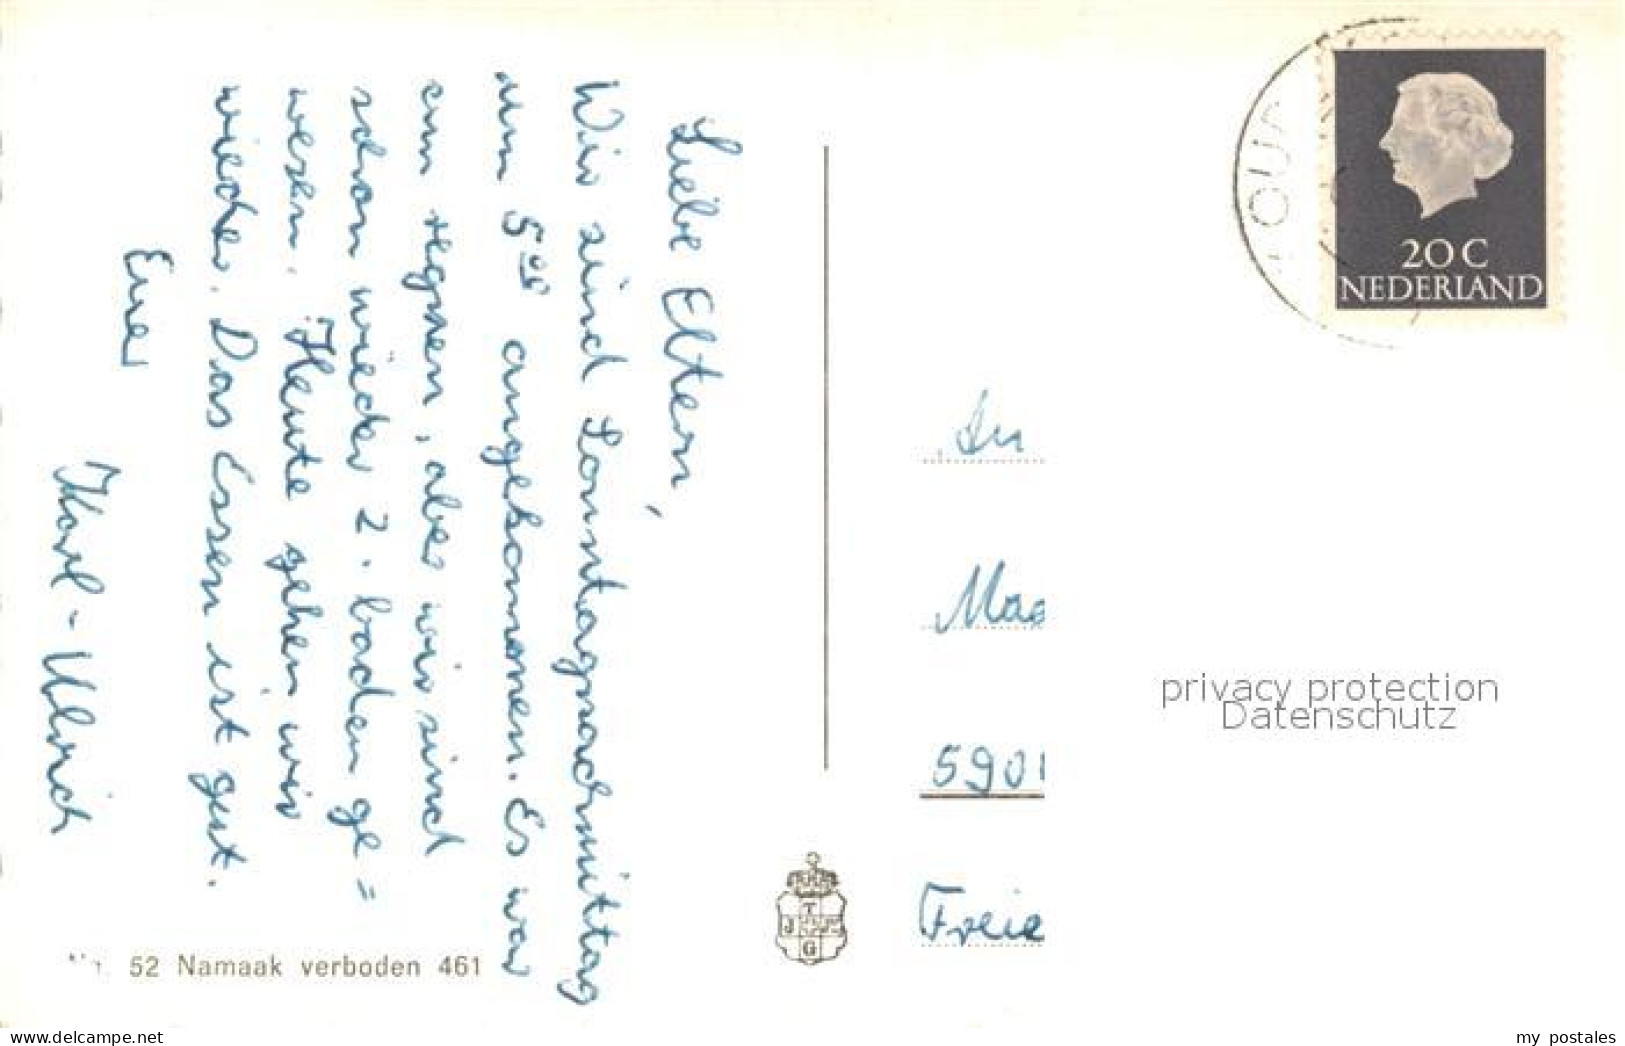 Liebe Eltern,
Wir sind Sonntagnachmittag
um 5 00 angekommen. Es war
am regnen, aber wir sind
schon wieder 2. baden ge=
wesen. Heute gehen wir
wieder. Das Essen ist gut.
Euer
Karl-Ulrich
52 Namaak verboden 461
T
J S
G
OUD
20 C
NEDERLAND
An
Maa
5901
Freie
privacy protection
Datenschutz
www.delcampe.net
my_postales